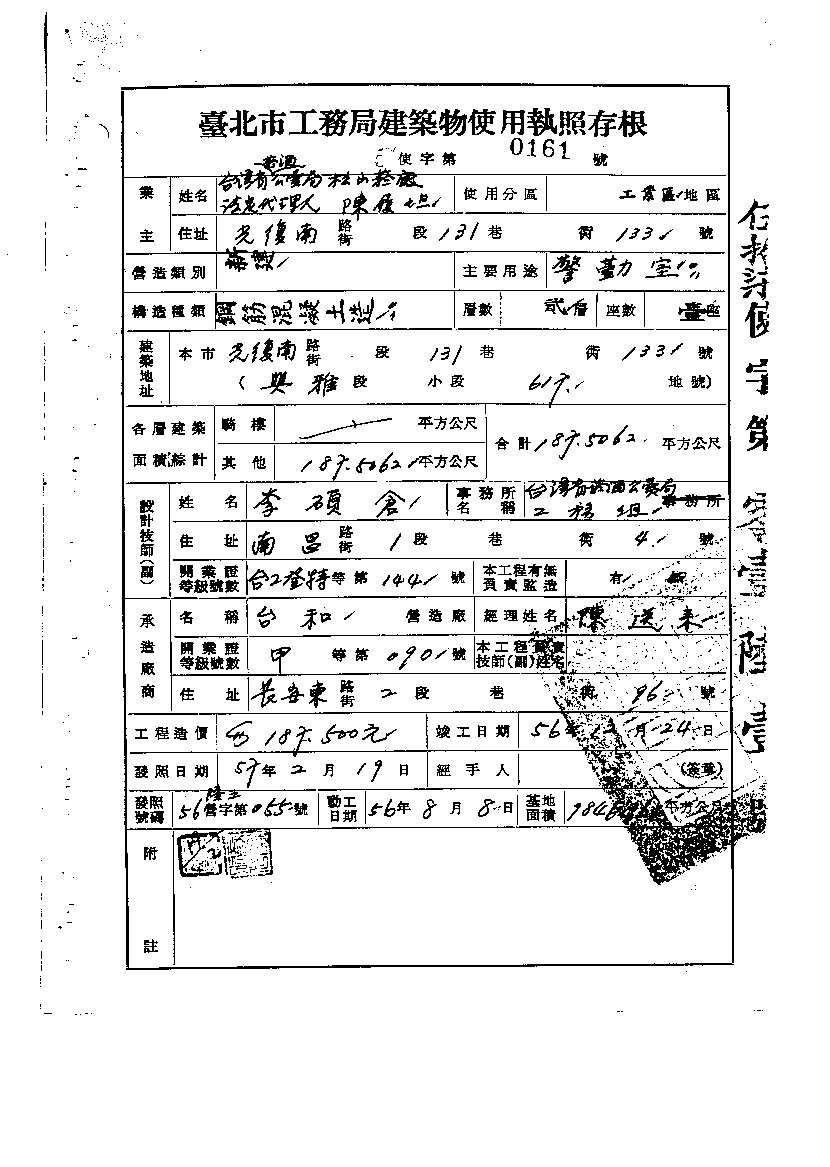 臺北市工務局建築物使用執照存根
使字第 0161 號
業主 姓名 台灣省菸酒公賣局松山菸廠 法定代理人 陳 使用分區 工業區 地區
住址 光復南 路街 段 131 巷 街 133 號
營造類別 主要用途 警勤室
構造種類 鋼筋混凝土造 層數 貳層 座數 壹座
建築地址 本市 光復南 路街 段 131 巷 街 133 號
( 興雅 段 小段 地號 )
各層建築面積綜計 騎樓 平方公尺 合計 187.5062 平方公尺
其他 187.5062 平方公尺
設計技師(副) 姓名 李碩倉 事務所名稱 台灣省菸酒公賣局工務組 事務所
住址 南昌 路街 1 段 巷 街 4 號
開業證等級號數 台工登特 等第 144 號 本工程有無負責監造 有 無
承造廠商 名稱 台和 營造廠 經理姓名 陳送來
開業證等級號數 甲 等第 0901 號 本工程負責技師(副)姓名
住址 長安東 路街 2 段 巷 街 96 號
工程造價 187.500元 竣工日期 56 年 12 月 24 日
發照日期 57 年 2 月 19 日 經手人 (簽章)
發照號碼 56 營字第 055 號 動工日期 56 年 8 月 8 日 基地面積 平方公尺
附註
伍拾柒使字第零壹陸壹號